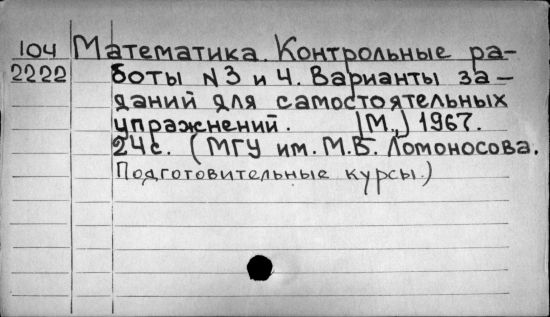 104 Математика. Контрольные ра-
2222 боты N 3 и 4. Варианты за-
даний для самостоятельных
упражнений. [М.,] 1967.
24 с. (МГУ им. М.В. Ломоносова.
Подготовительные курсы.)